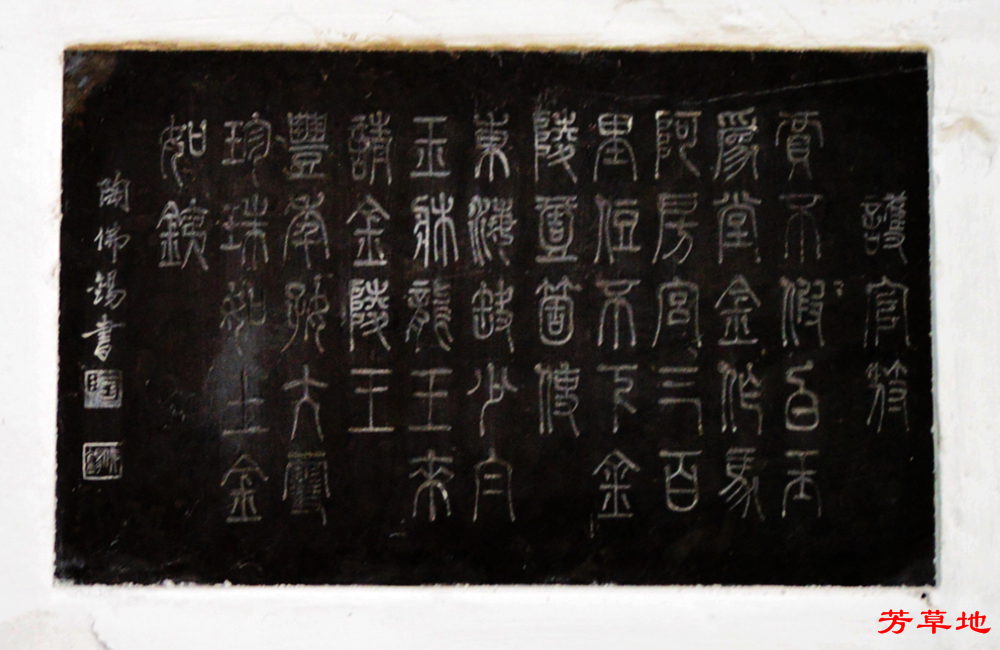 護官符
賈不假白玉
爲堂金作馬
阿房宮三百
里住不下金
陵壹箇史
東海缺少白
玉牀龍王來
請金陵王
豐年好大雪
珍珠如土金
如鐵
陶佛書
芳草地